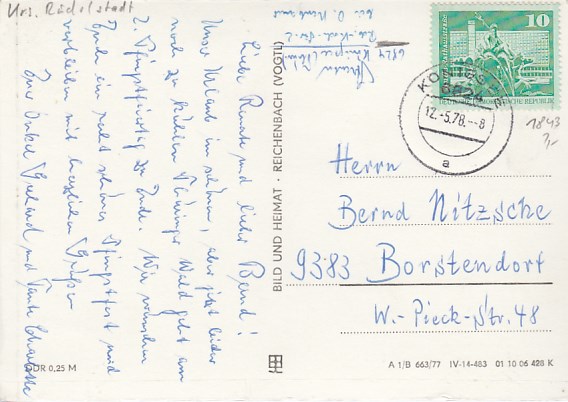 Krs. Rudolstadt
Liebe Renate und lieber Bernd!
Unser Urlaub im schönen, aber jetzt leider
noch zu kühlen Thüringer Wald geht am
2. Pfingstfeiertag zu Ende. Wir wünschen
Euch ein recht schönes Pfingstfest und
verbleiben mit herzlichen Grüßen
Euer Onkel Gerhard und Tante Charlotte
DDR 0,25 M
BILD UND HEIMAT · REICHENBACH (VOGTL)
6824 Königsee
10
DEUTSCHE DEMOKRATISCHE REPUBLIK
KÖNIGSEE
6824
12.-5.78.--8
a
1843
Herrn
Bernd Nitzsche
9383 Borstendorf
W.-Pieck-Str. 48
A 1/B 663/77 IV-14-483 01 10 06 428 K